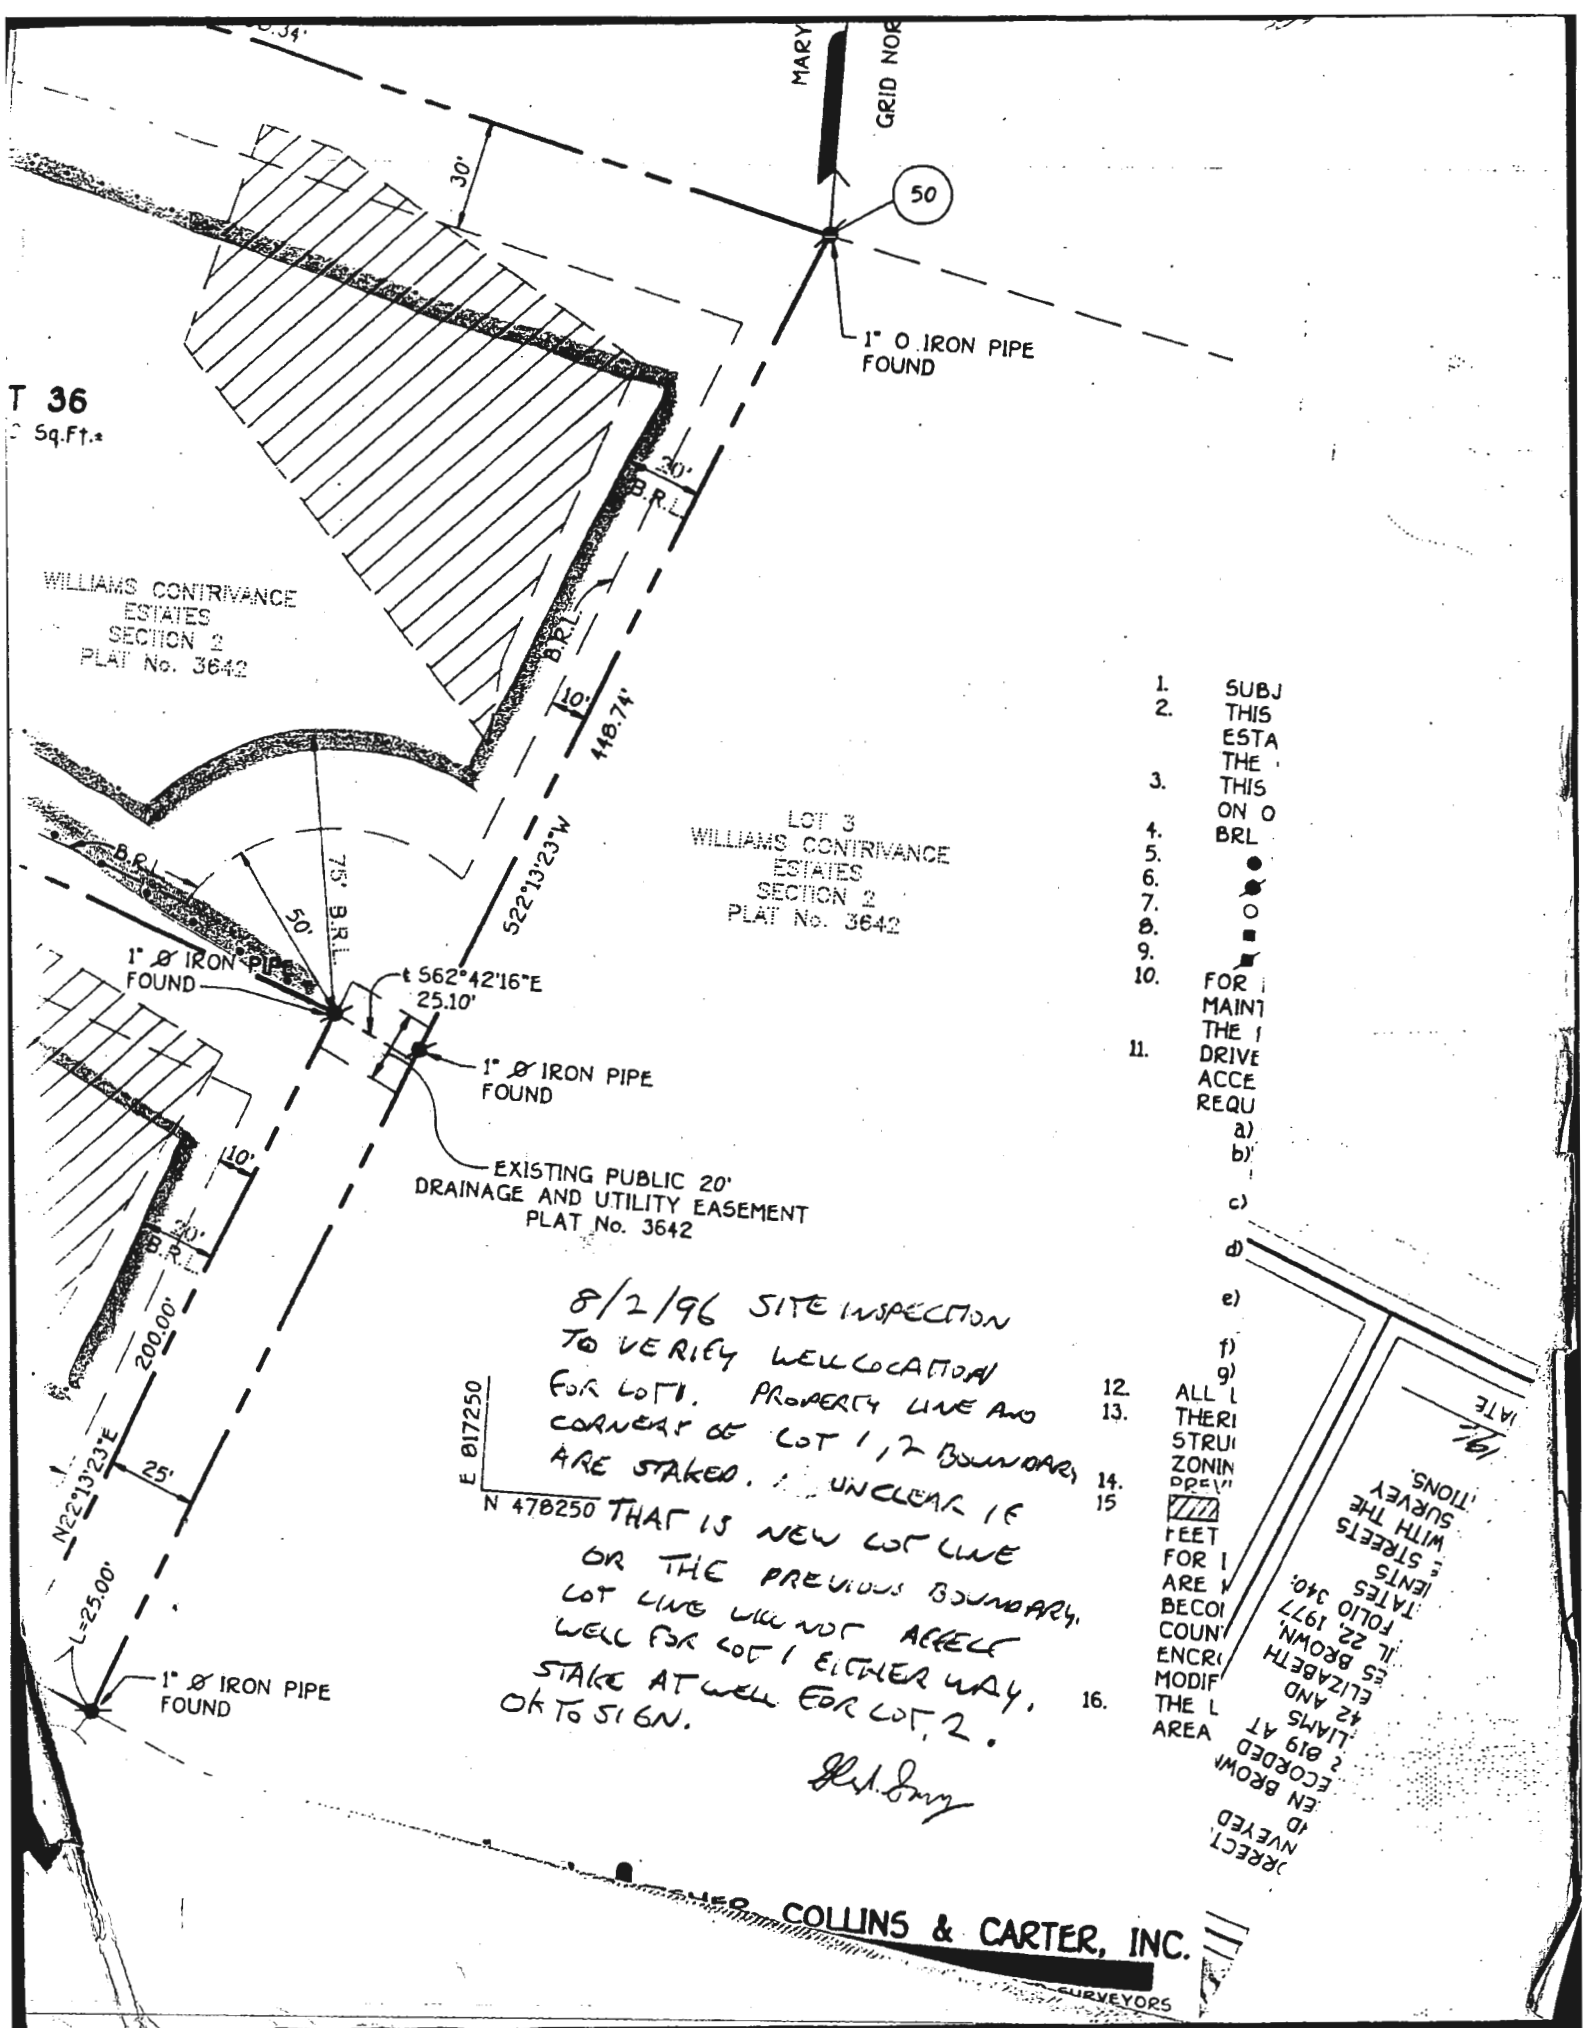 MARY
GRID NOR
30'
50
1" O IRON PIPE
FOUND
T 36
Sq.Ft.±
20'
B.R.L.
WILLIAMS CONTRIVANCE
ESTATES
SECTION 2
PLAT No. 3642
B.R.L.
10'
448.74'
S22°13'23"W
LOT 3
WILLIAMS CONTRIVANCE
ESTATES
SECTION 2
PLAT No. 3642
B.R.L.
50'
75' B.R.L.
1" Ø IRON PIPE
FOUND
S62°42'16"E
25.10'
1" Ø IRON PIPE
FOUND
EXISTING PUBLIC 20'
DRAINAGE AND UTILITY EASEMENT
PLAT No. 3642
10'
20'
B.R.L.
200.00'
N22°13'23"E
25'
L=25.00'
1" Ø IRON PIPE
FOUND
E 817250
N 478250
8/2/96 SITE INSPECTION
TO VERIFY WELL LOCATION
FOR LOT 1. PROPERTY LINE AND
CORNERS OF LOT 1, 2 BOUNDARY
ARE STAKED. UNCLEAR IF
THAT IS NEW LOT LINE
OR THE PREVIOUS BOUNDARY.
LOT LINE WILL NOT AFFECT
WELL FOR LOT 1 EITHER WAY.
STAKE AT WELL FOR LOT 2.
OK TO SIGN.
1. SUBJ
2. THIS
ESTA
THE
3. THIS
ON O
4. BRL
5.
6.
7.
8.
9.
10. FOR
MAINT
THE
11. DRIVE
ACCE
REQU
a)
b)
c)
d)
e)
f)
g)
12. ALL L
13. THERE
STRU
ZONIN
14. PREV
15
FEET
FOR
ARE
BECO
COUN
ENCR
MODIF
16. THE L
AREA
ORRECT
NVEYED
EN BROWN
ECORDED
819 AT
LIAMS
42 AND
ELIZABETH
ES BROWN,
22, 1977
FOLIO 340.
TATES
ENTS
STREETS
WITH THE
SURVEY
TIONS.
COLLINS & CARTER, INC.
SURVEYORS